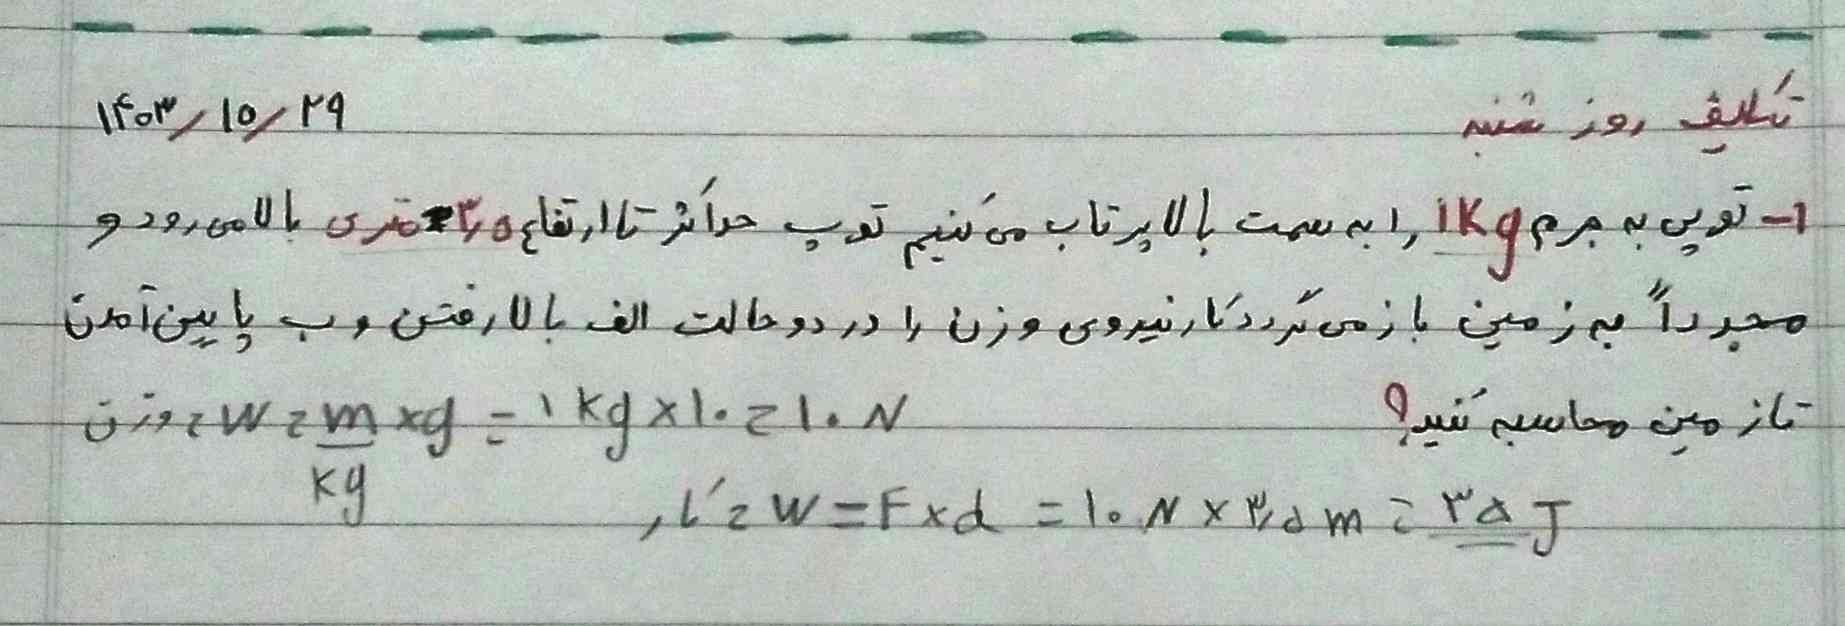 تکالیف روز شنبه ۱۴۰۳/۱۰/۲۹
۱- توپی به جرم ۱Kg را به سمت بالا پرتاب می‌کنیم توپ حداکثر تا ارتفاع ۳٫۵ متری بالا می‌رود و
مجدداً به زمین باز می‌گردد کار نیروی وزن را در دو حالت الف بالا رفتن و ب پایین آمدن
تا زمین محاسبه کنید؟ وزن = W = m × g = ۱ kg × ۱۰ = ۱۰ N
kg
کار = W = F × d = ۱۰ N × ۳٫۵ m = ۳۵ J